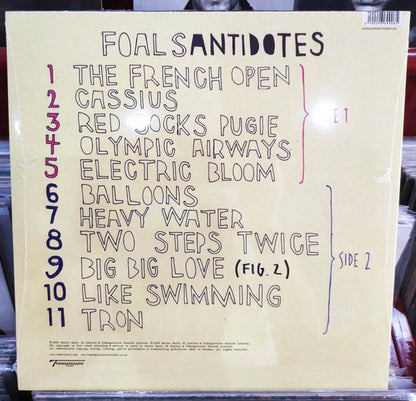 FOALS ANTIDOTES
1 THE FRENCH OPEN
2 CASSIUS
3 RED SOCKS PUGIE
4 OLYMPIC AIRWAYS
5 ELECTRIC BLOOM
6 BALLOONS
7 HEAVY WATER
8 TWO STEPS TWICE
9 BIG BIG LOVE (FIG. 2)
10 LIKE SWIMMING
11 TRON
SIDE 2
Transgressive